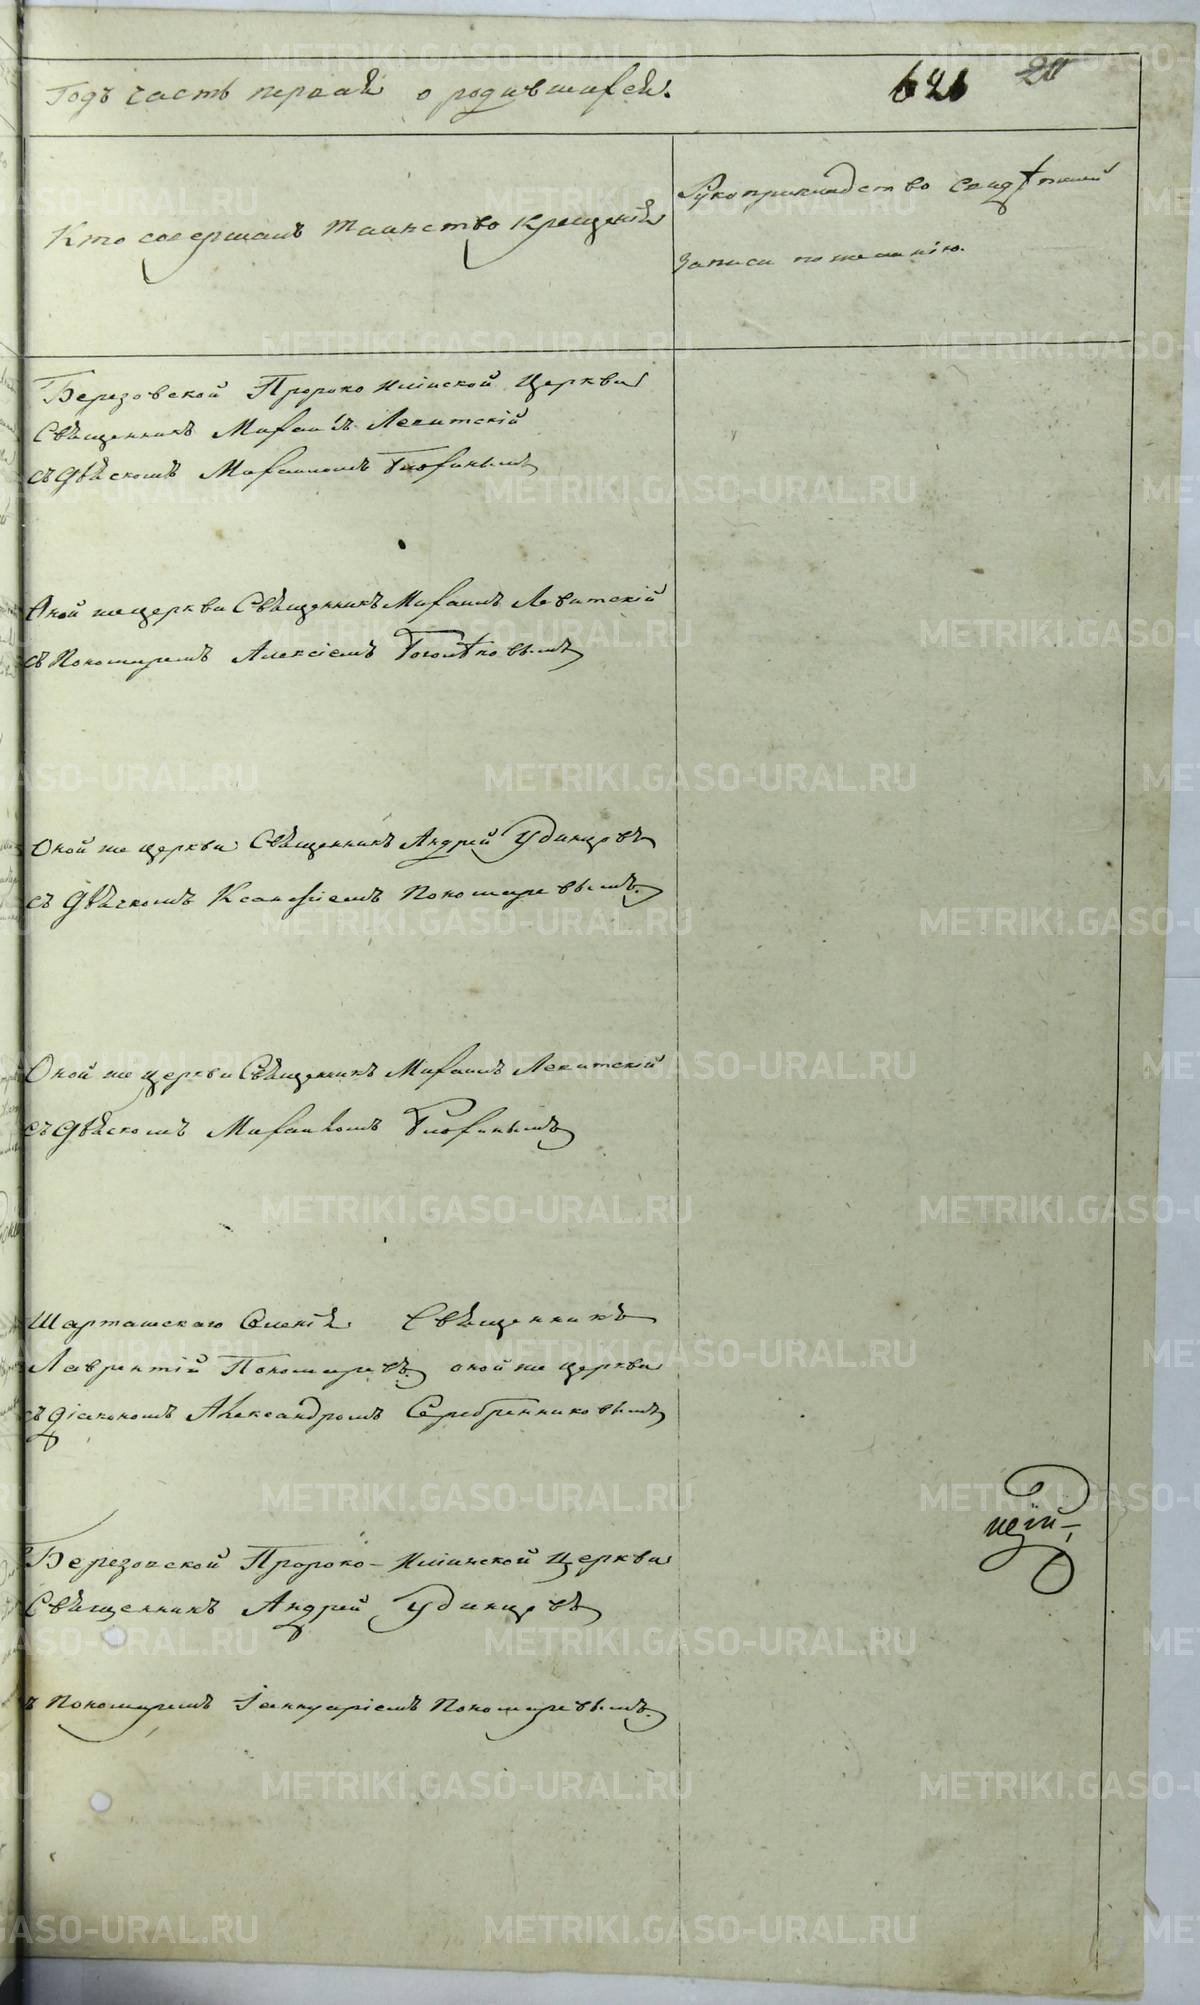 Годъ часть первая о родившихся. 626 20
Кто совершалъ таинство крещенія
Рукоприкладство свидѣтелей
записи по желанію.
Березовской Пророко Илiинской Церкви
Священникъ Михаилъ Левитскій
съ дьячкомъ Михаиломъ
Оной же церкви Священникъ Михаилъ Левитскій
съ Пономаремъ Алексіемъ Боголѣповымъ
Оной же церкви Священникъ Андрей Удинцовъ
съ Дьячкомъ Ксанѳіемъ Пономаревымъ.
Оной же церкви Священникъ Михаилъ Левитскій
съ дьячкомъ Михаиломъ
Шарташскаго Селенія Священникъ
Лаврентій Пономаревъ оной же церкви
съ діакономъ Александромъ Серебренниковымъ
Березовской Пророко-Илiинской Церкви
Священникъ Андрей Удинцовъ
ъ Пономаремъ Іаннуаріемъ Пономаревымъ.
METRIKI.GASO-URAL.RU